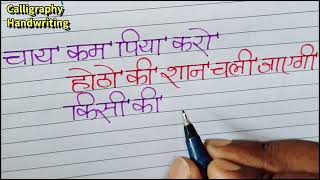 Calligraphy
Handwriting
चाय कम पिया करो
होठो की शान चली जाएगी
किसी की